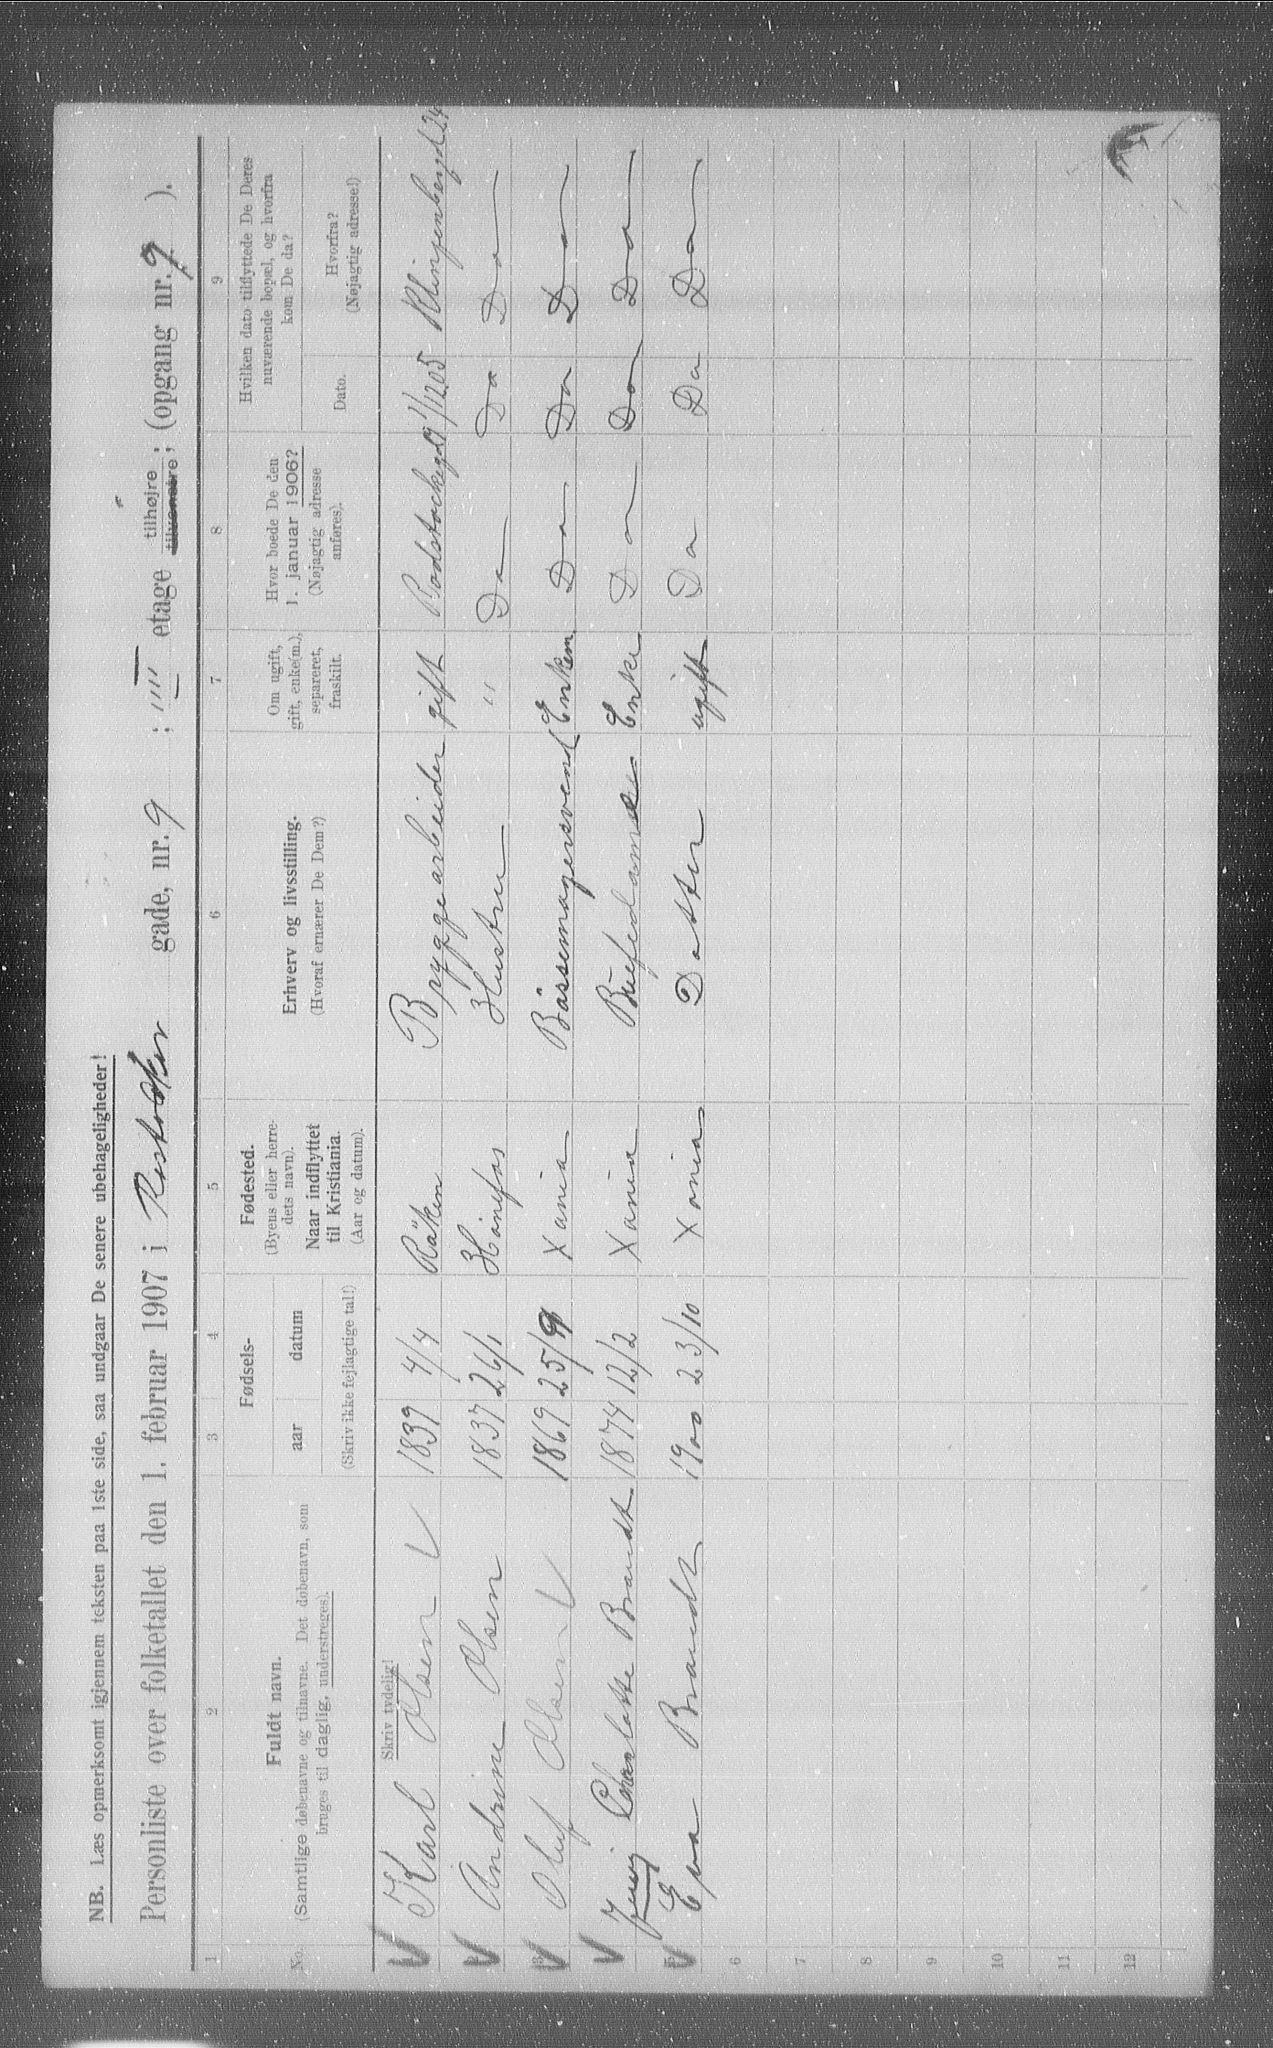 NB. Læs opmerksomt igjennem teksten paa 1ste side, saa undgaar De senere ubehageligheder!
Personliste over folketallet den 1. februar 1907 i gade, nr. 9 ; '''' etage tilhøjre ; tilvenstre ; (opgang nr. 9 ).
1 2 3 4 5 6 7 8 9
No.
Fuldt navn.
(Samtlige døbenavne og tilnavne. Det døbenavn, som
bruges til daglig, understreges).
Fødsels-
aar datum
(Skriv ikke fejlagtige tal!)
Fødested.
(Byens eller herre-
dets navn).
Naar indflyttet
til Kristiania.
(Aar og datum).
Erhverv og livsstilling.
(Hvoraf ernærer De Dem?)
Om ugift,
gift, enke(m.),
separeret,
fraskilt.
Hvor boede De den
1. januar 1906?
(Nøjagtig adresse
anføres).
Hvilken dato tilflyttede De Deres
nuværende bopæl, og hvorfra
kom De da?
Dato.
Hvorfra?
(Nøjagtig adresse!)
Skriv tydelig!
Karl Olsen 1839 4/4 Røken Bryggearbeider gift 1/12 05 Klingenberggd 24
Andrine Olsen 1837 26/1 Hönefos Hustru " Do Do Do
3 Oluf Olsen 1869 25/9 Xania Bössemagersvend Enkem. Do Do Do
Charlotte Brandt 1874 12/2 Xania Enke Do Do Do
Eva Brandt 1900 23/10 Xania Datter ugift Do Do Do
6
7
8
9
10
11
12